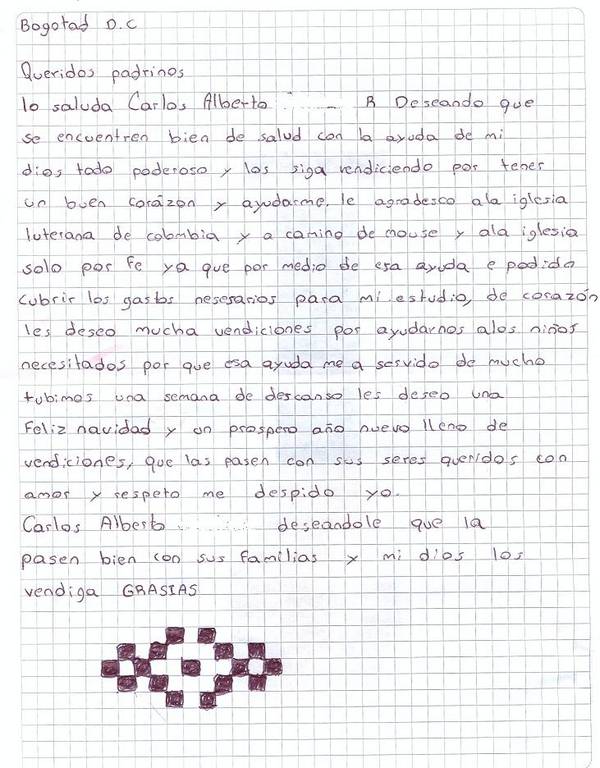 Bogotad D.C
Queridos padrinos
lo saluda Carlos Alberto R Deseando que
se encuentren bien de salud con la ayuda de mi
dios todo poderoso y los siga vendiciendo por tener
un buen corázon y ayudarme, le agradesco ala iglesia
luterana de colombia y a camino de mouse y ala iglesia
solo por fe ya que por medio de esa ayuda e podido
cubrir los gastos nesesarios para mi estudio, de corazón
les deseo mucha vendiciones por ayudarnos alos niños
necesitados por que esa ayuda me a servido de mucho
tubimos una semana de descanso les deseo una
Feliz navidad y un prospero año nuevo lleno de
vendiciones, que las pasen con sus seres queridos con
amor y respeto me despido yo.
Carlos Alberto deseandole que la
pasen bien con sus familias y mi dios los
vendiga GRASIAS